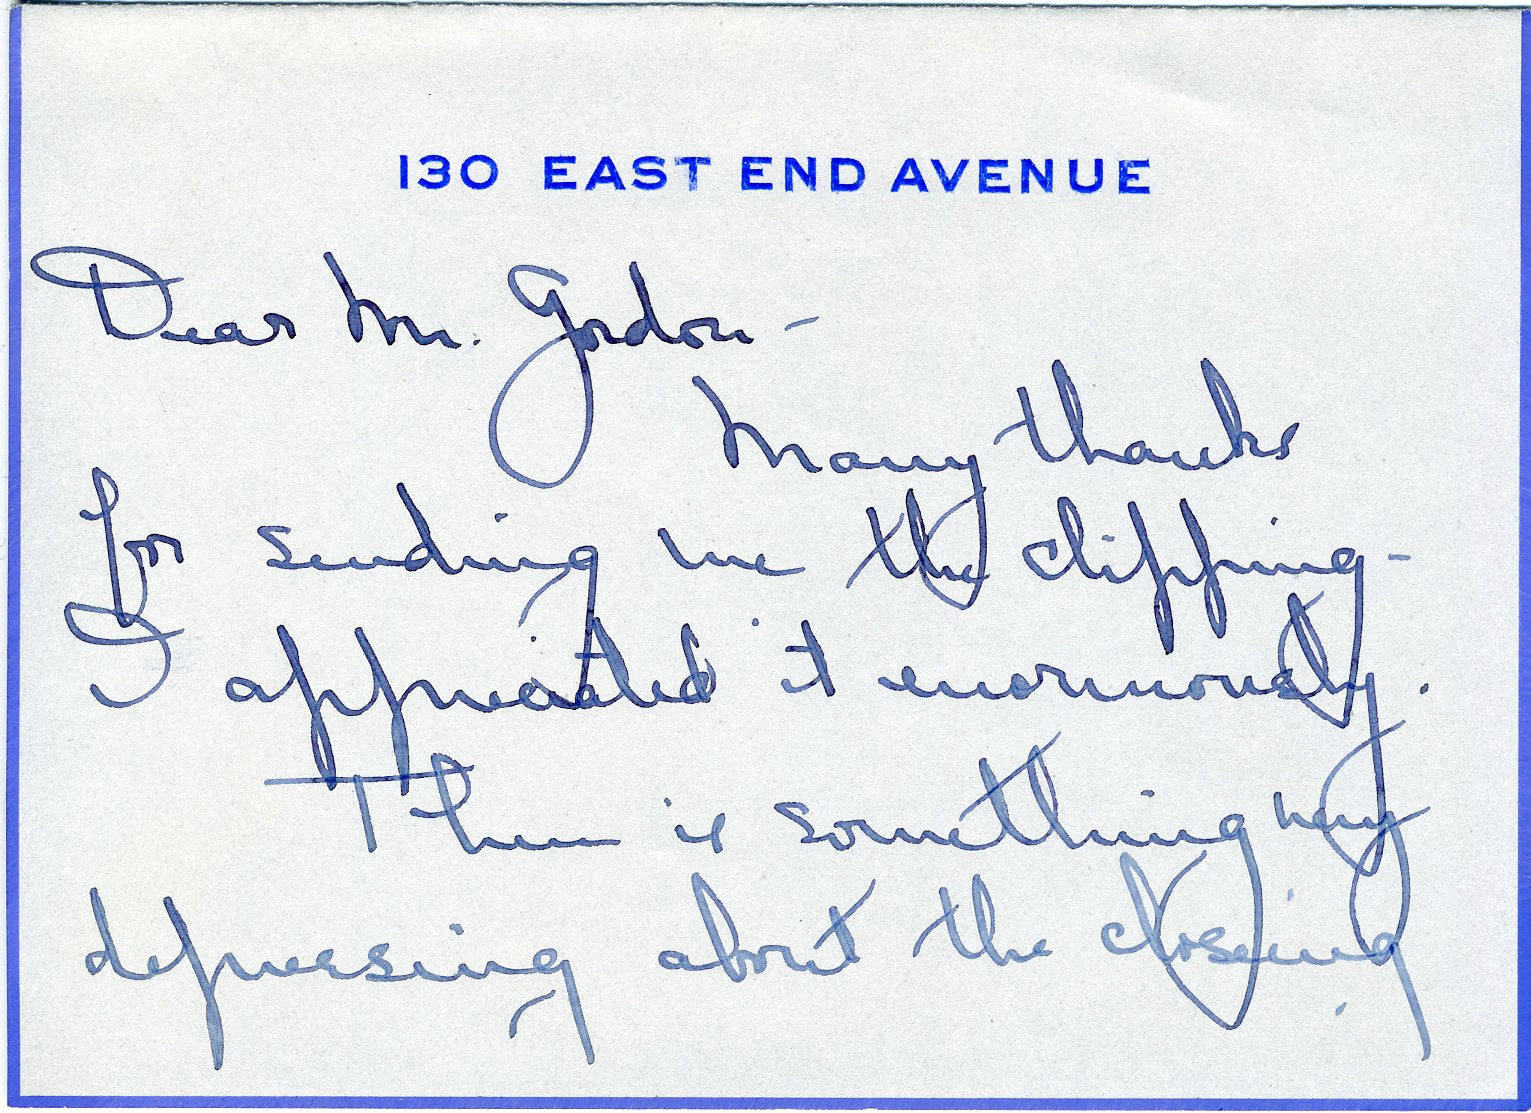 130 EAST END AVENUE
Dear Mr. Gordon -
Many thanks
for sending me the clipping -
I appreciated it enormously.
There is something very
depressing about the closeing